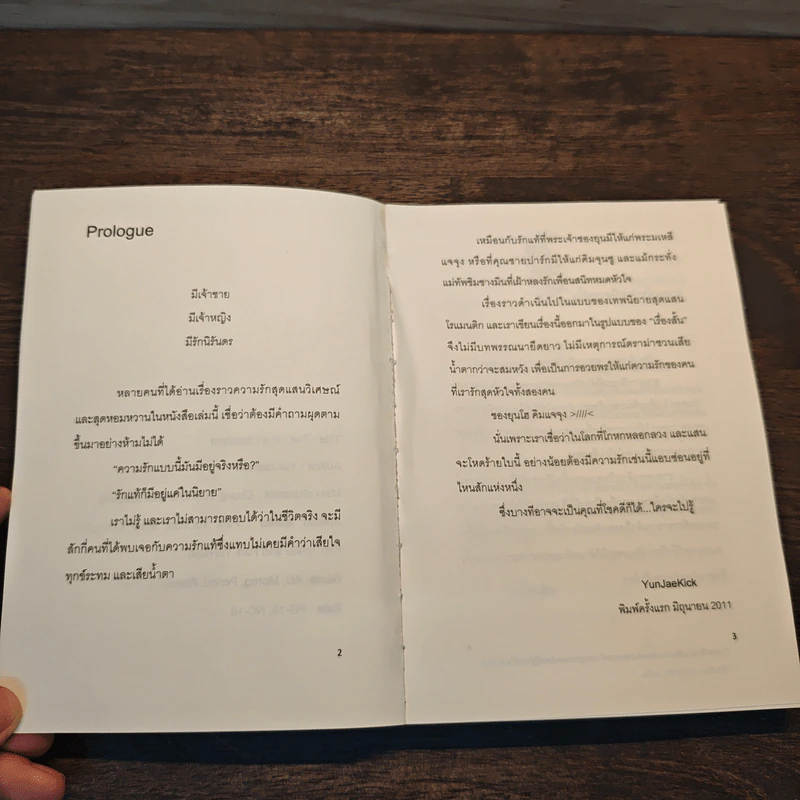 Prologue
มีเจ้าชาย
มีเจ้าหญิง
มีรักนิรันดร
หลายคนที่ได้อ่านเรื่องราวความรักสุดแสนวิเศษณ์
และสุดหอมหวานในหนังสือเล่มนี้ เชื่อว่าต้องมีคำถามผุดตาม
ขึ้นมาอย่างห้ามไม่ได้
"ความรักแบบนี้มันมีอยู่จริงหรือ?"
"รักแท้ก็มีอยู่แค่ในนิยาย"
เราไม่รู้ และเราไม่สามารถตอบได้ว่าในชีวิตจริง จะมี
สักกี่คนที่ได้พบเจอกับความรักแท้ซึ่งแทบไม่เคยมีคำว่าเสียใจ
ทุกข์ระทม และเสียน้ำตา
2
เหมือนกับรักแท้ที่พระเจ้าชองยุนมีให้แก่พระมเหสี
แจจุง หรือที่คุณชายปาร์กมีให้แก่คิมจุนซู และแม้กระทั่ง
แม่ทัพชิมชางมินที่เฝ้าหลงรักเพื่อนสนิทหมดหัวใจ
เรื่องราวดำเนินไปในแบบของเทพนิยายสุดแสน
โรแมนติก และเราเขียนเรื่องนี้ออกมาในรูปแบบของ "เรื่องสั้น"
จึงไม่มีบทพรรณนายืดยาว ไม่มีเหตุการณ์ดราม่าชวนเสีย
น้ำตากว่าจะสมหวัง เพื่อเป็นการอวยพรให้แก่ความรักของคน
ที่เรารักสุดหัวใจทั้งสองคน
ชองยุนโฮ คิมแจจุง >////<
นั่นเพราะเราเชื่อว่าในโลกที่โกหกหลอกลวง และแสน
จะโหดร้ายใบนี้ อย่างน้อยต้องมีความรักเช่นนี้แอบซ่อนอยู่ที่
ไหนสักแห่งหนึ่ง
ซึ่งบางทีอาจจะเป็นคุณที่โชคดีก็ได้...ใครจะไปรู้
YunJaeKick
พิมพ์ครั้งแรก มิถุนายน 2011
3